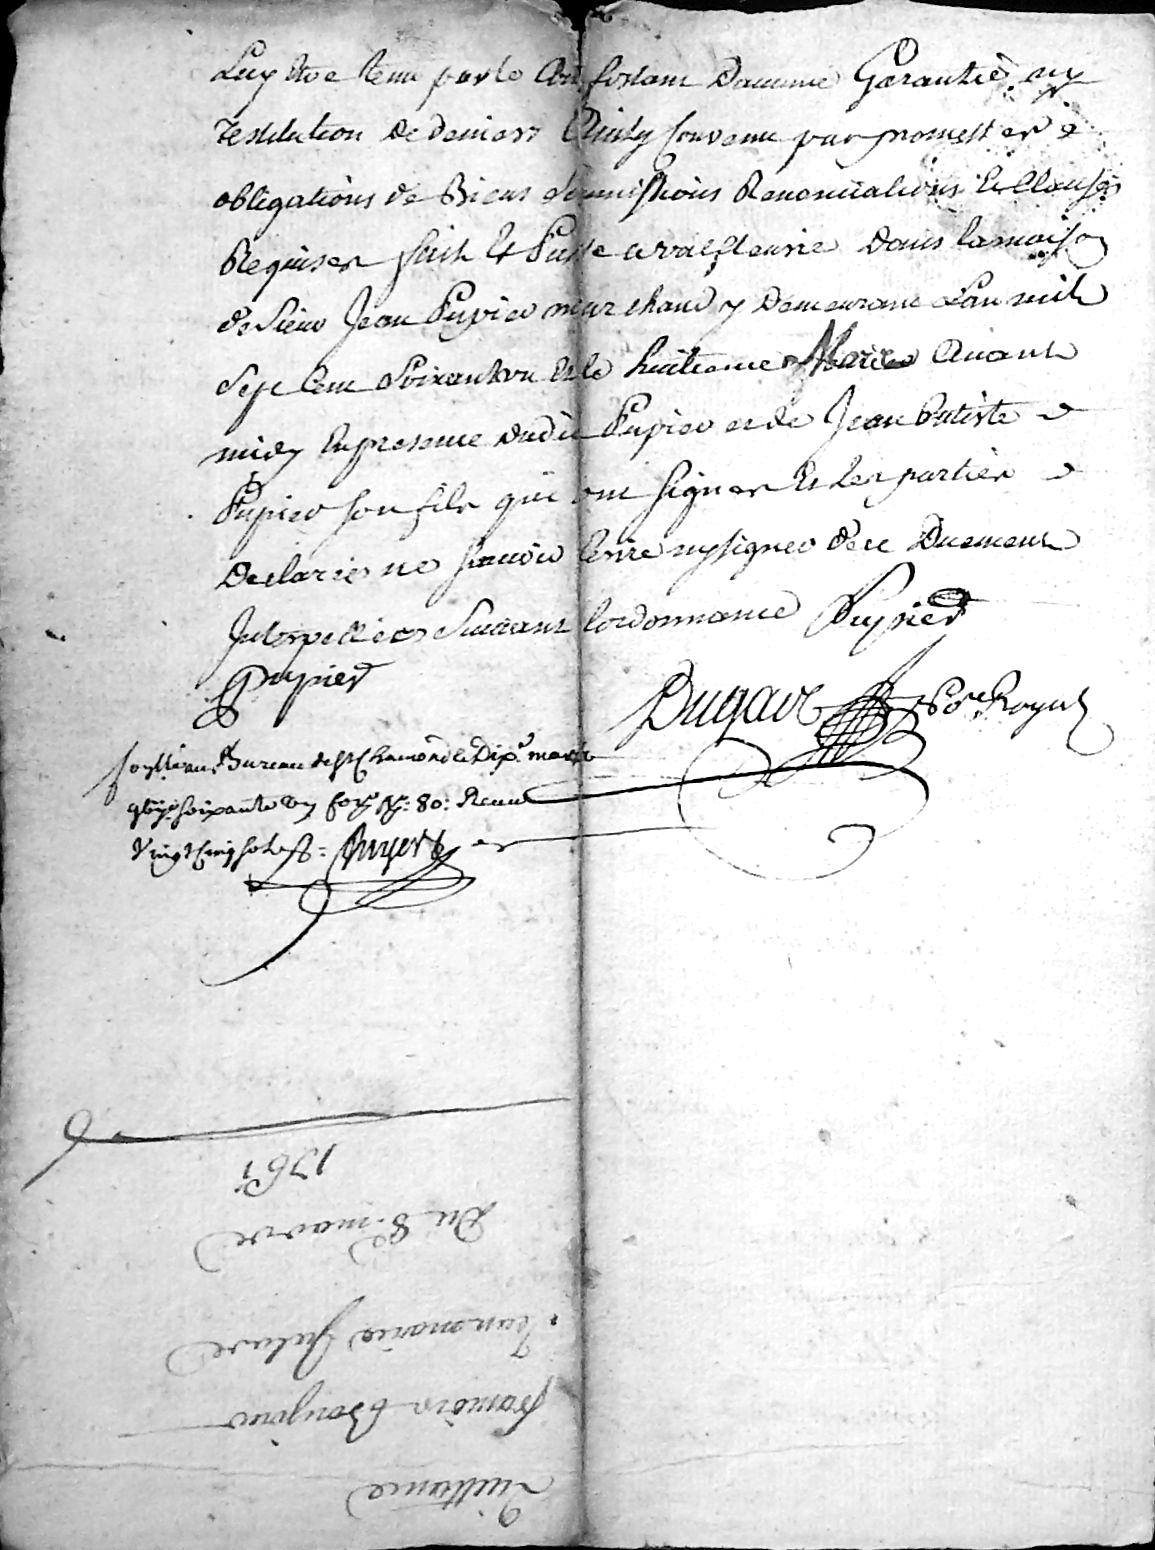 Luy être tenu par le Consortant Daucune Garantie ny
restitution de deniers Ainsy Convenu par promesses
obligations de Biens soumissions Renonciations Et Clauses
Requises fait Et Passé a valfleurie dans la maison
de sieur Jean Pupier marchand y demeurant L'an mil
sept Cent soixante un Et le huitieme Mars Avant
midy En presence dudit Pupier et de Jean Batiste
Pupier son fils qui ont signer Et les parties
declarés ne scavoir Ecrire ny signer de ce Duement
Interpellées Suivant lordonnance Pupier
Pupier
Dugave Nore Royal
au Bureau de St Chamond le Dix mars
soixante un fo 80: Recu
vingt Cinq sols
Quittance
françois Bonjour
Jean marie
Du 8e mars
1761